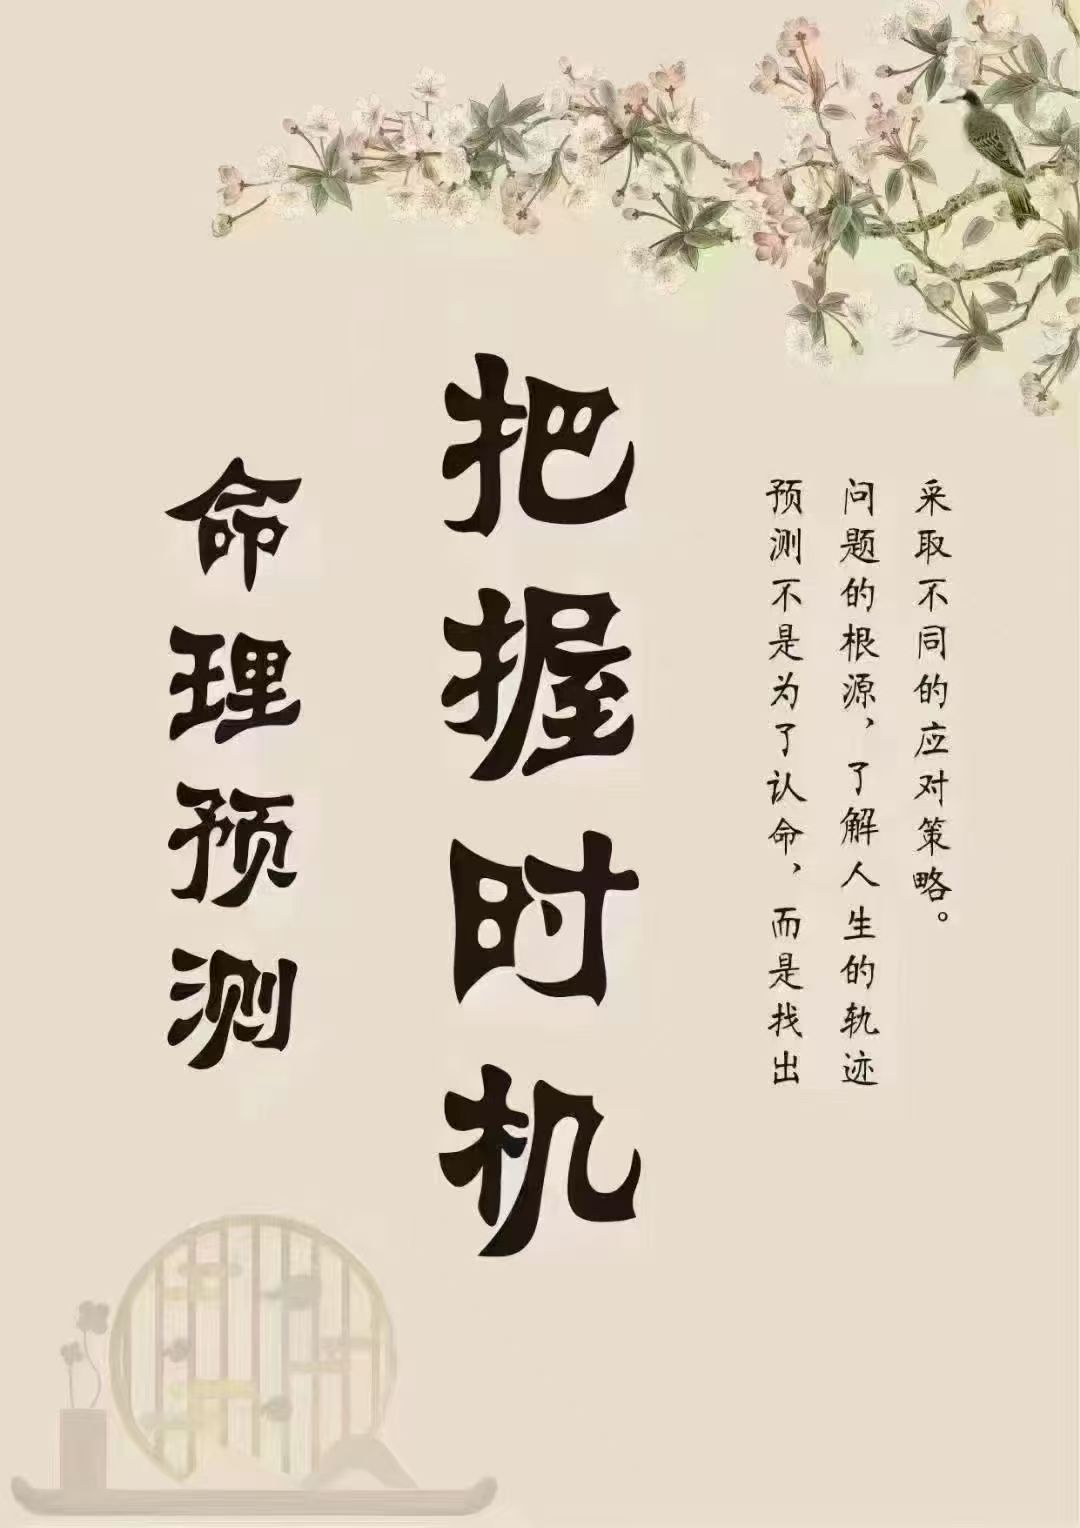 把握时机
命理预测
预测不是为了认命，而是找出
问题的根源，了解人生的轨迹
采取不同的应对策略。